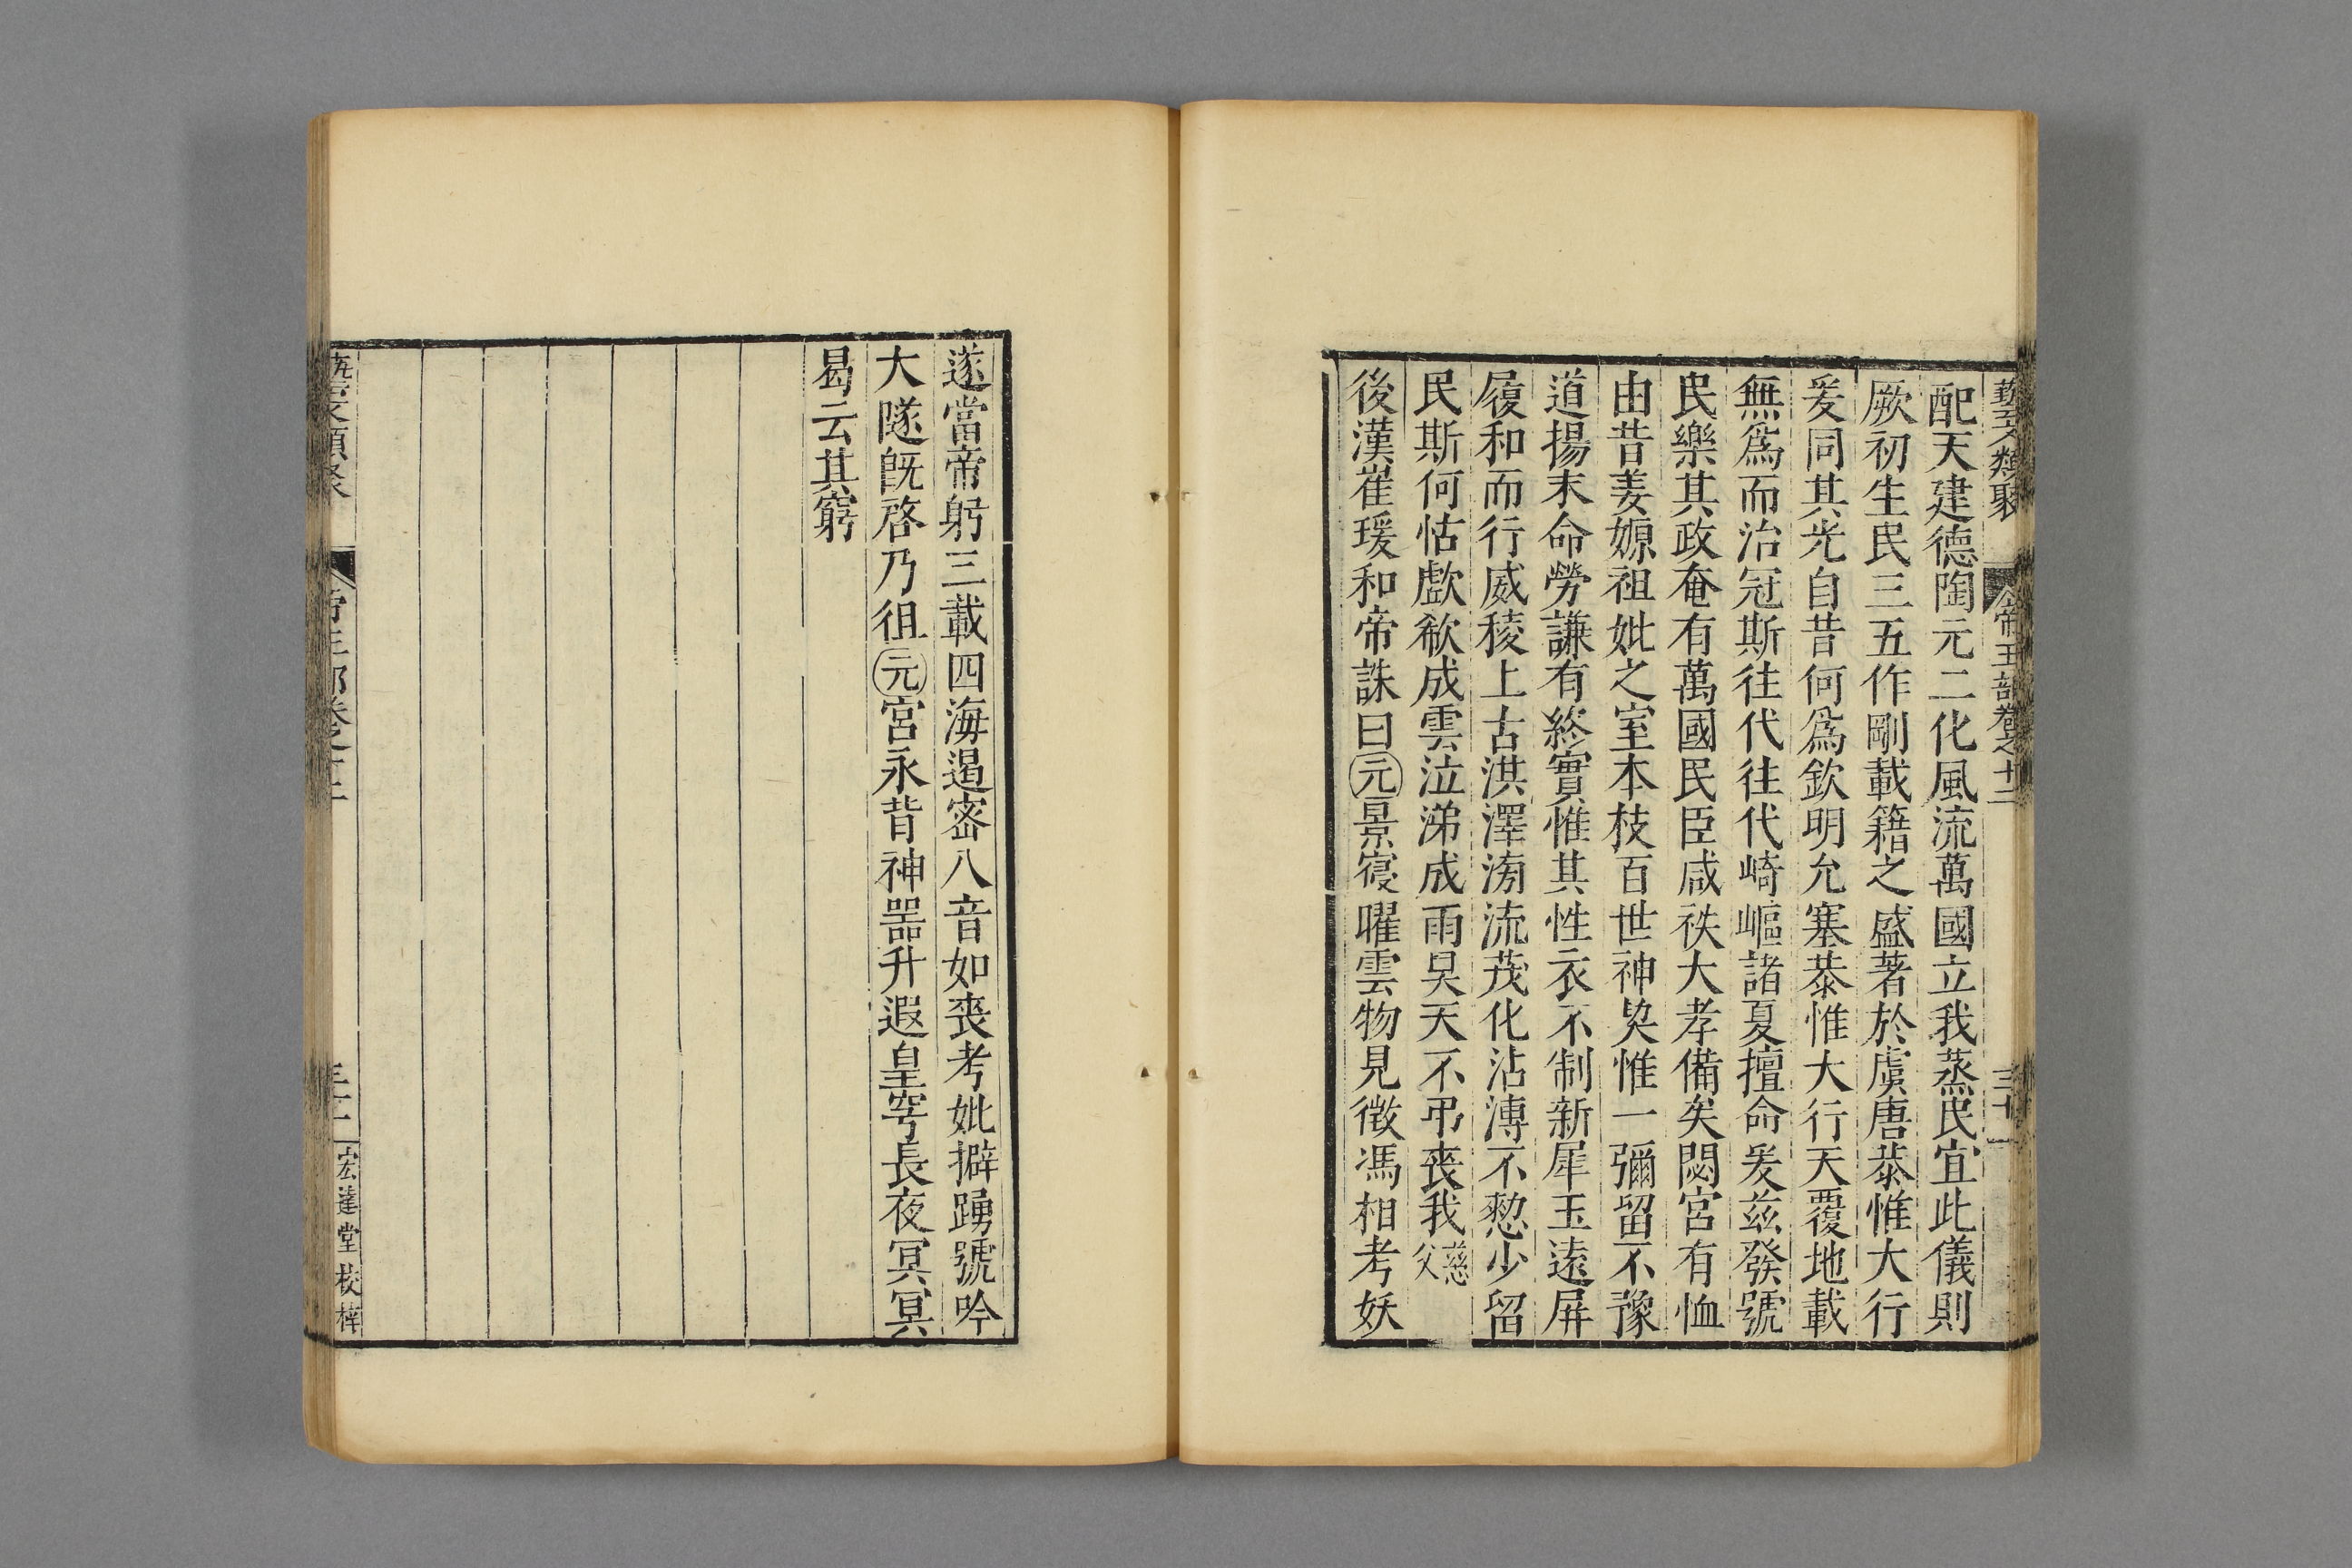 藝文類聚 帝王部卷之十二 三十一
配天建德陶元二化風流萬國立我蒸民宜此儀則
厥初生民三五作剛載籍之盛著於虞唐恭惟大行
爰同其光自昔何爲欽明允塞恭惟大行天覆地載
無爲而治冠斯往代往代崎嶇諸夏擅命爰茲發號
民樂其政奄有萬國民臣咸秩大孝備矣閟宮有恤
由昔姜嫄祖妣之室本枝百世神契惟一彌留不豫
道揚末命勞謙有終實惟其性衣不制新犀玉遠屏
履和而行威稜上古洪澤滂流茂化沾溥不憖少留
民斯何怙歔欷成雲泣涕成雨昊天不弔喪我慈父
後漢崔瑗和帝誄曰元景寑曜雲物見徵馮相考妖
遂當帝躬三載四海遏密八音如喪考妣擗踴號吟
大隧旣啓乃徂元宮永背神器升遐皇穹長夜冥冥
曷云其窮
藝文類聚 帝王部卷之十二 三十一 宏達堂校梓